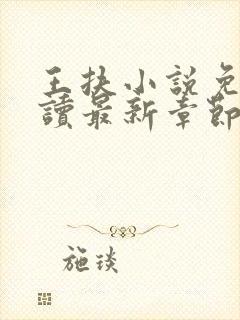 王扶小説免
讀最新章節
施琰